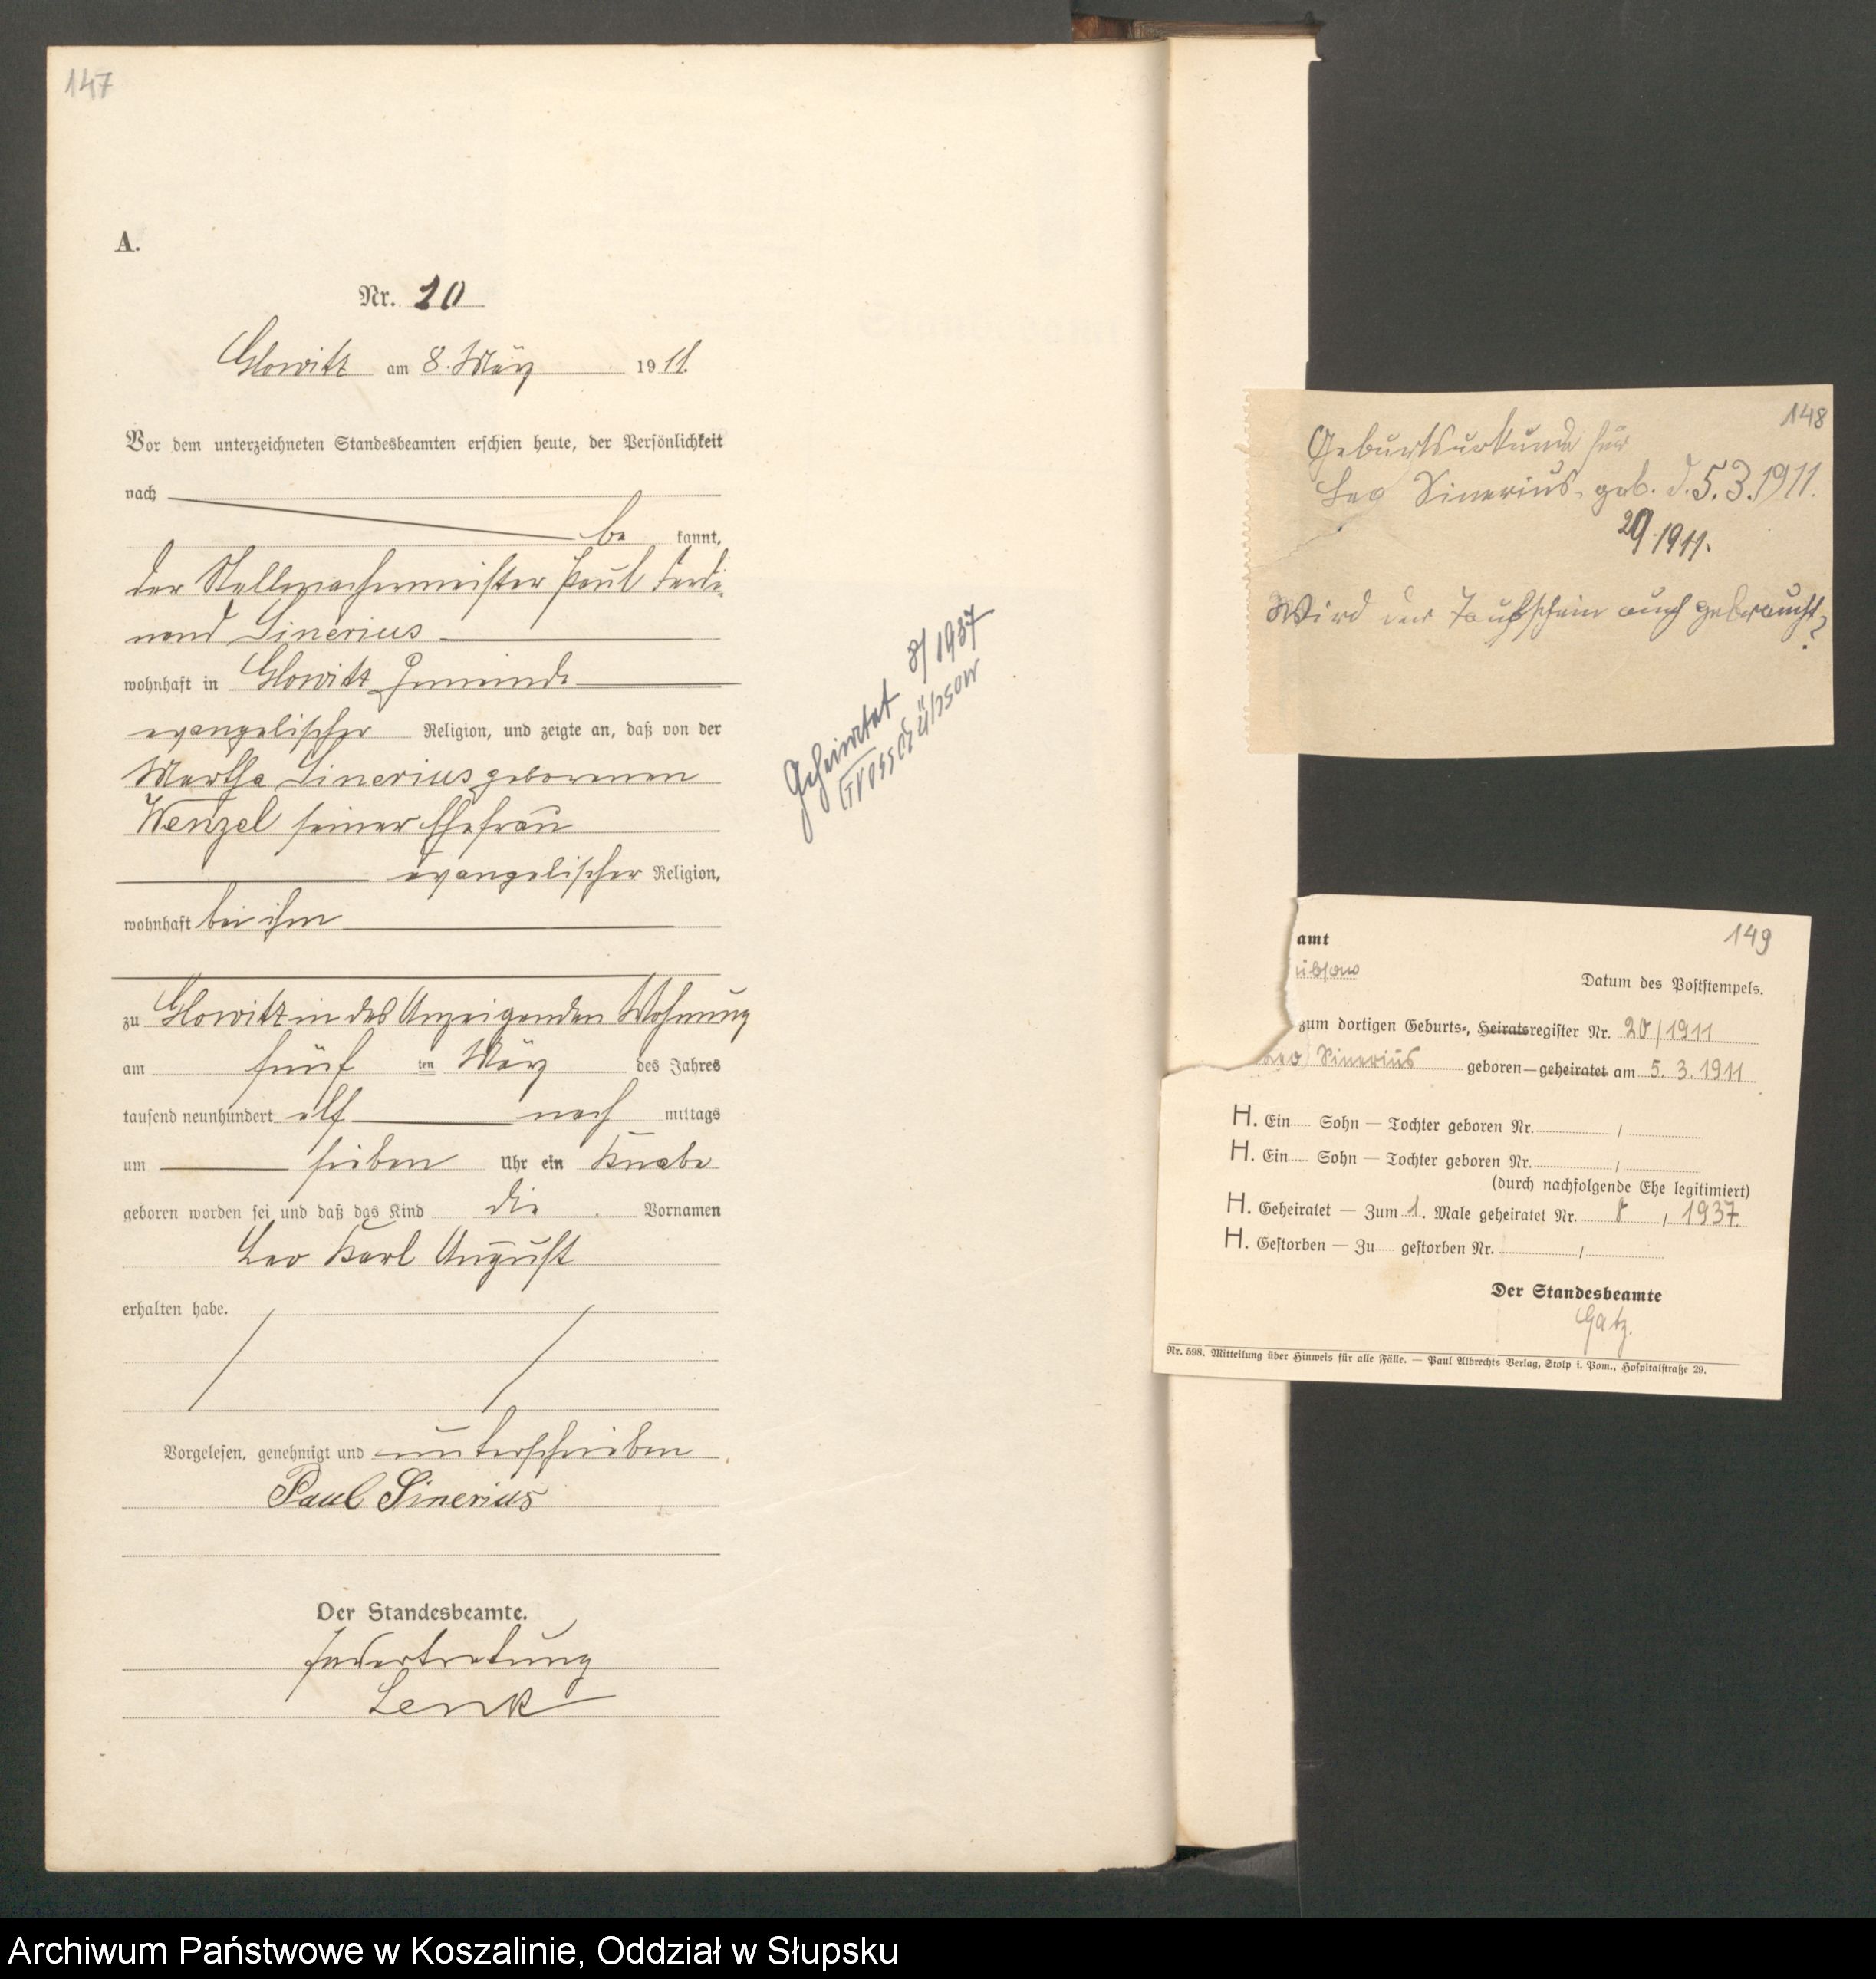 147
A.
Nr. 20
Glowitz am 8. März 1911.
Vor dem unterzeichneten Standesbeamten erschien heute, der Persönlichkeit
nach
be kannt,
der Stellmachermeister Paul Ferdi-
nand Sinerius
wohnhaft in Glowitz Gemeinde
evangelischer Religion, und zeigte an, daß von der
Martha Sinerius geborenen
Wenzel seiner Ehefrau
evangelischer Religion,
wohnhaft bei ihm
zu Glowitz in des Anzeigenden Wohnung
am fünf ten März des Jahres
tausend neunhundert elf nach mittags
um sieben Uhr ein Knabe
geboren worden sei und daß das Kind die Vornamen
Leo Karl August
erhalten habe.
Vorgelesen, genehmigt und unterschrieben
Paul Sinerius
Der Standesbeamte.
In Vertretung
Lenk
Geheiratet 8/1937
Grossdübsow
148
Geburtsurkunde für
Leo Sinerius, geb. d. 5.3.1911.
20/1911.
Wird der Taufschein auch gebraucht?
149
amt
übsow
Datum des Poststempels.
zum dortigen Geburts-, Heiratsregister Nr. 20/1911
Leo Sinerius geboren — geheiratet am 5. 3. 1911
H. Ein Sohn — Tochter geboren Nr. /
H. Ein Sohn — Tochter geboren Nr. /
(durch nachfolgende Ehe legitimiert)
H. Geheiratet — Zum 1. Male geheiratet Nr. 8 / 1937
H. Gestorben — Zu gestorben Nr. /
Der Standesbeamte
Gatz.
Nr. 598. Mitteilung über Hinweis für alle Fälle. — Paul Albrechts Verlag, Stolp i. Pom., Hospitalstraße 29.
Archiwum Państwowe w Koszalinie, Oddział w Słupsku